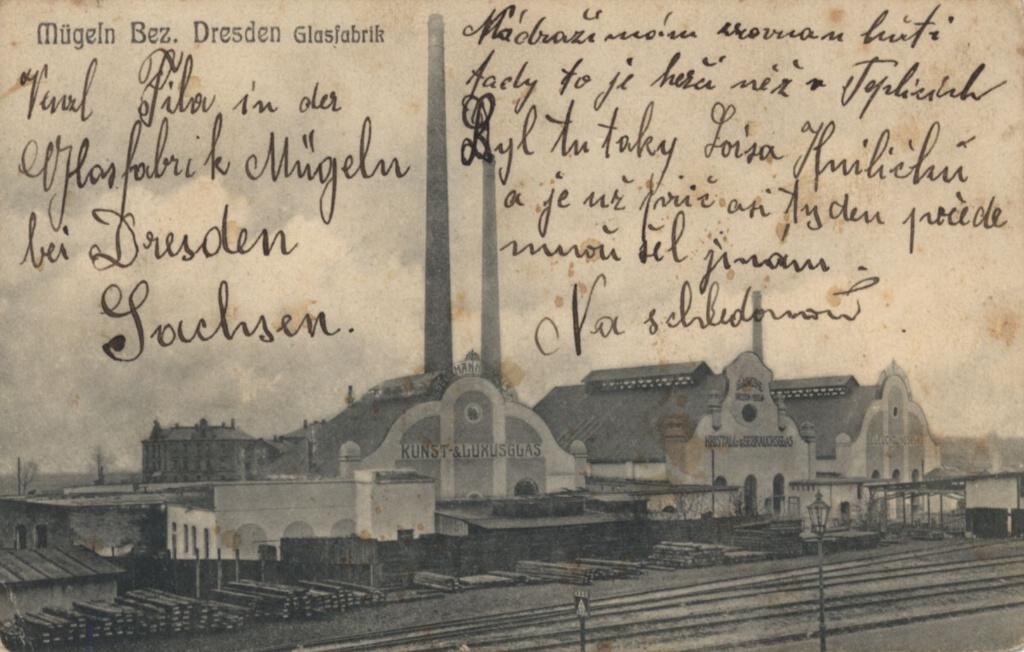 Mügeln Bez. Dresden Glasfabrik
Venzl Pila in der
Glasfabrik Mügeln
bei Dresden
Sachsen.
Nádraží mám zrovna u huti
tady to je herší než v Teplicích
Byl tu taky Loisa Hniličků
a je už prič asi tyden přede
mnou šel jinám.
Na schledanou.
MANN
KUNST-&LUXUSGLAS
KRISTALL-&GEBRAUCHSGLAS